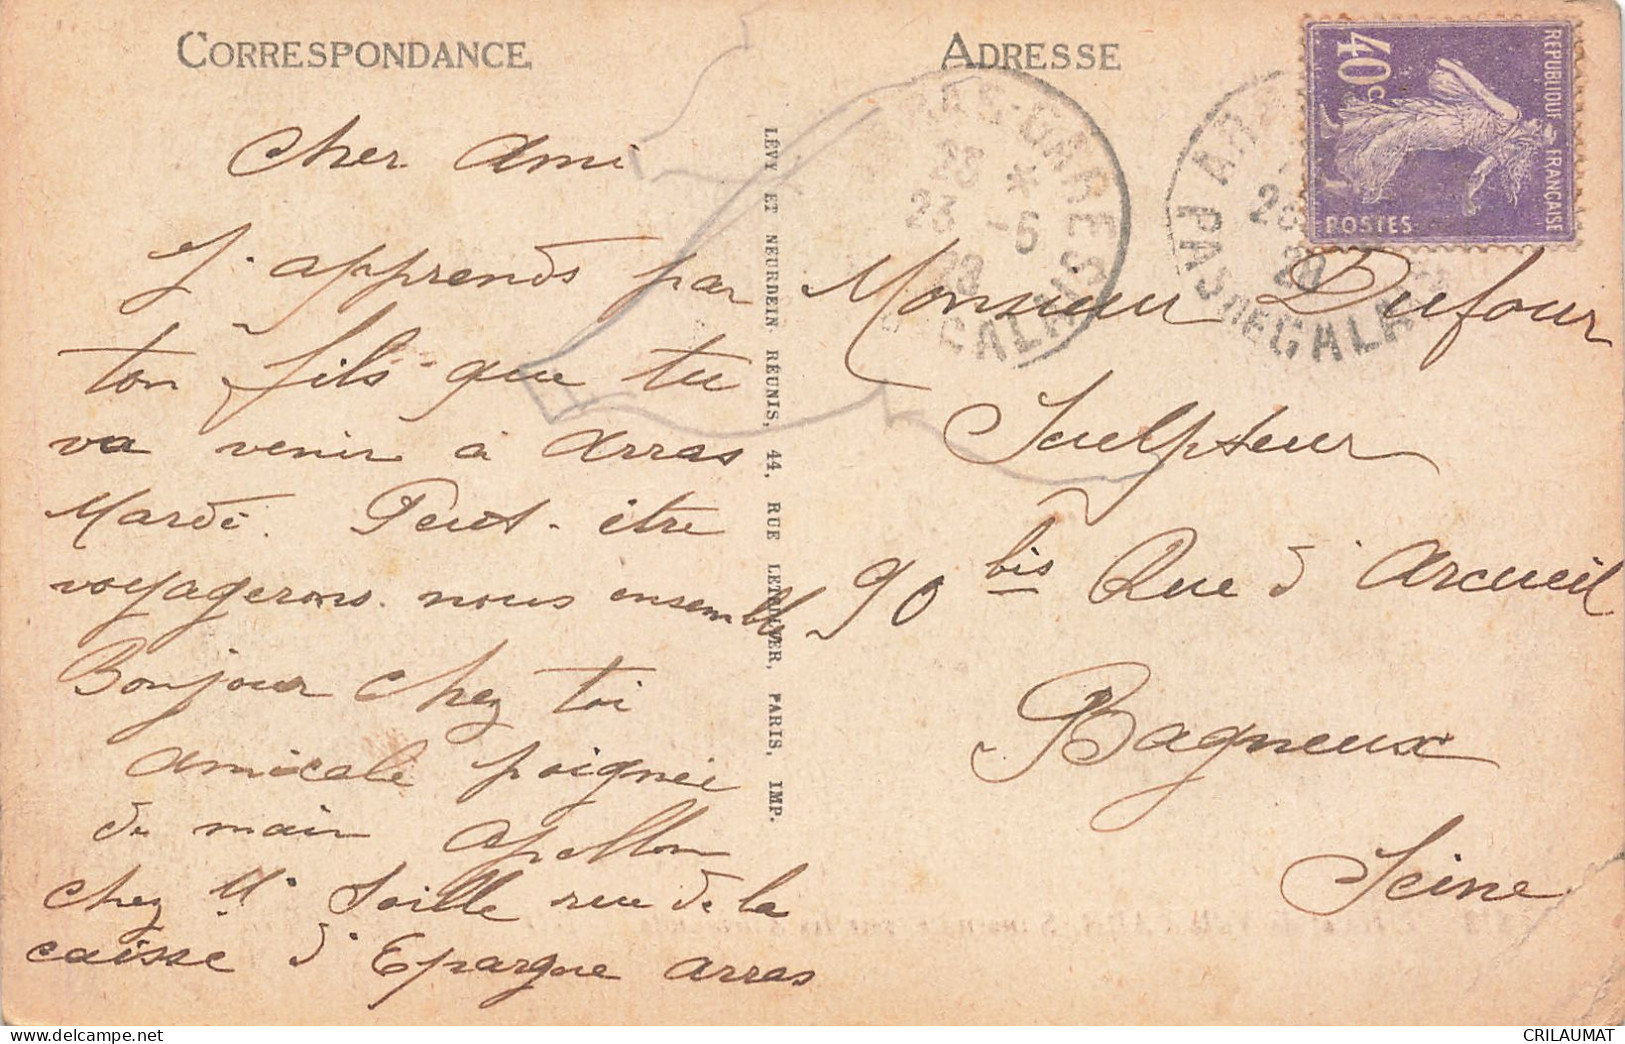 CORRESPONDANCE
cher ami
J. apprends par
ton fils que tu
va venir à Arras
Mardi. Peut-être
voyagerons nous ensemble
Bonjour chez toi
amicale poignée
de main Apollon
chez Mr Soille rue de la
caisse d'Epargne Arras
LÉVY ET NEURDEIN RÉUNIS, 44, RUE LETELLIER, PARIS, IMP.
ADRESSE
Monsieur Dufour
Sculpteur
90 bis Rue d'Arcueil
Bagneux
Seine
40c
REPUBLIQUE FRANÇAISE
POSTES
ARRAS-GARE
23 *
23 -6
28
CALAIS
PAS DE CALAIS
28
CRILAUMAT